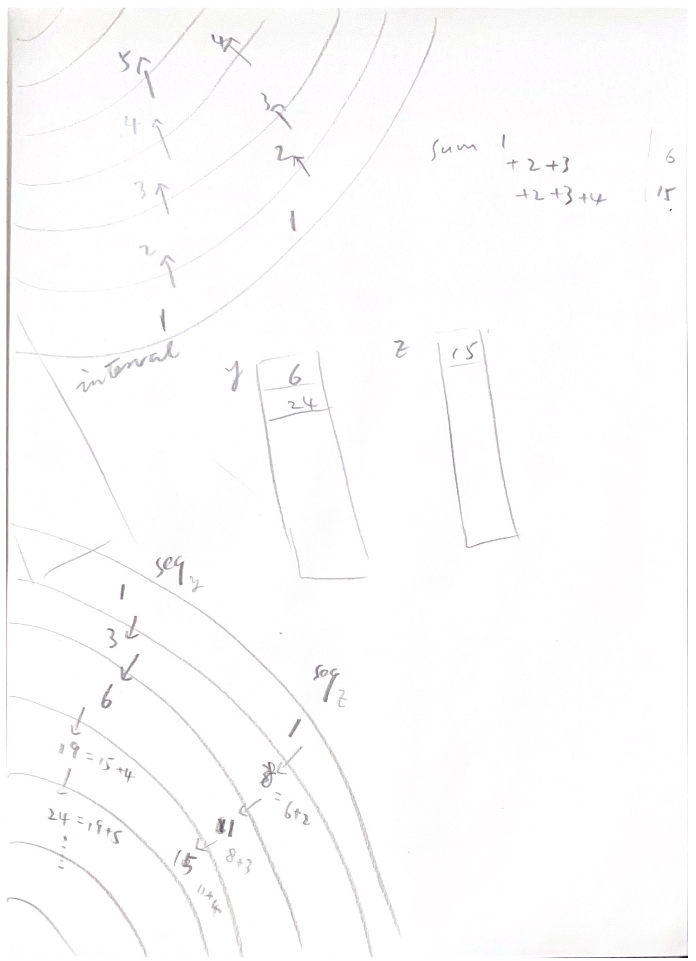 5
4
4
3
3
2
1
2
1
interval
Sum 1
+2+3 | 6
+2+3+4 | 15
y
6
24
z
15
seq y
1
3
6
19=15+4
24=19+5
seq z
1
8
=6+2
11
8+3
15
11+4